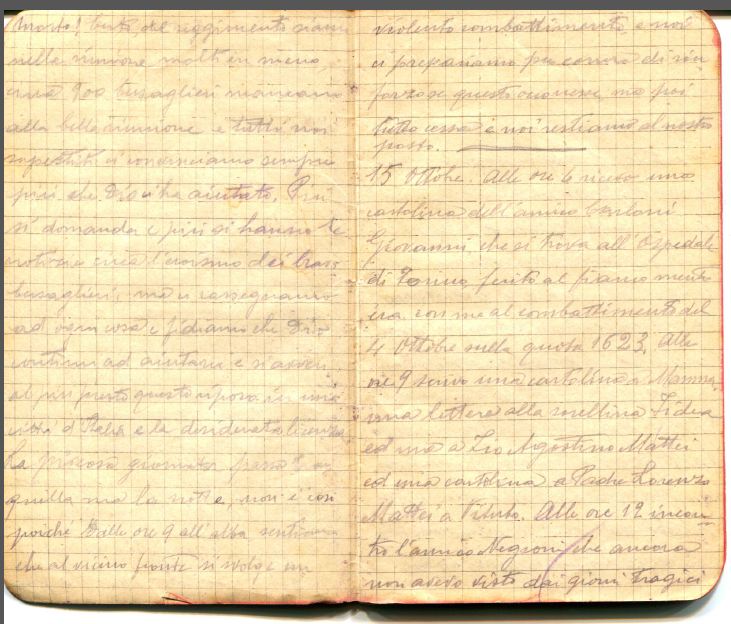 Morto! tutti del reggimento siamo
nella riunione molti in meno,
circa 900 bersaglieri mancano
alla bella riunione e tutti noi
superstiti ci convinciamo sempre
più che Dio ci ha aiutato. Più
si domanda e più si hanno le
notizie circa l'eroismo dei bravi
bersaglieri, ma ci rassegnamo
ad ogni cosa e fidiamo che Dio
continui ad aiutarci e si avveri
al più presto questo riposo in una
città d'Italia e la desiderata licenza
La piovosa giornata passa tran
quilla ma la notte, non è così
poiché dalle ore 9 all'alba sentiamo
che al vicino fronte si svolge un
violento combattimento, e noi
ci prepariamo per correre di rin
forzo se questo occorresse, ma poi
tutto cessa e noi restiamo al nostro
posto.
15 Ottobre. Alle ore 6 ricevo una
cartolina dell'amico
Giovanni che si trova all'Ospedale
di Torino ferito al fianco mentre
era con me al combattimento del
4 Ottobre sulla quota 1623. Alle
ore 9 scrivo una cartolina a Mamma
una lettera alla sorellina Fidea
ed una a Zio Agostino Mattei
ed una cartolina a Padre Lorenzo
Mattei a Viterbo. Alle ore 12 incon
tro l'amico Negroni che ancora
non avevo visto dai giorni tragici